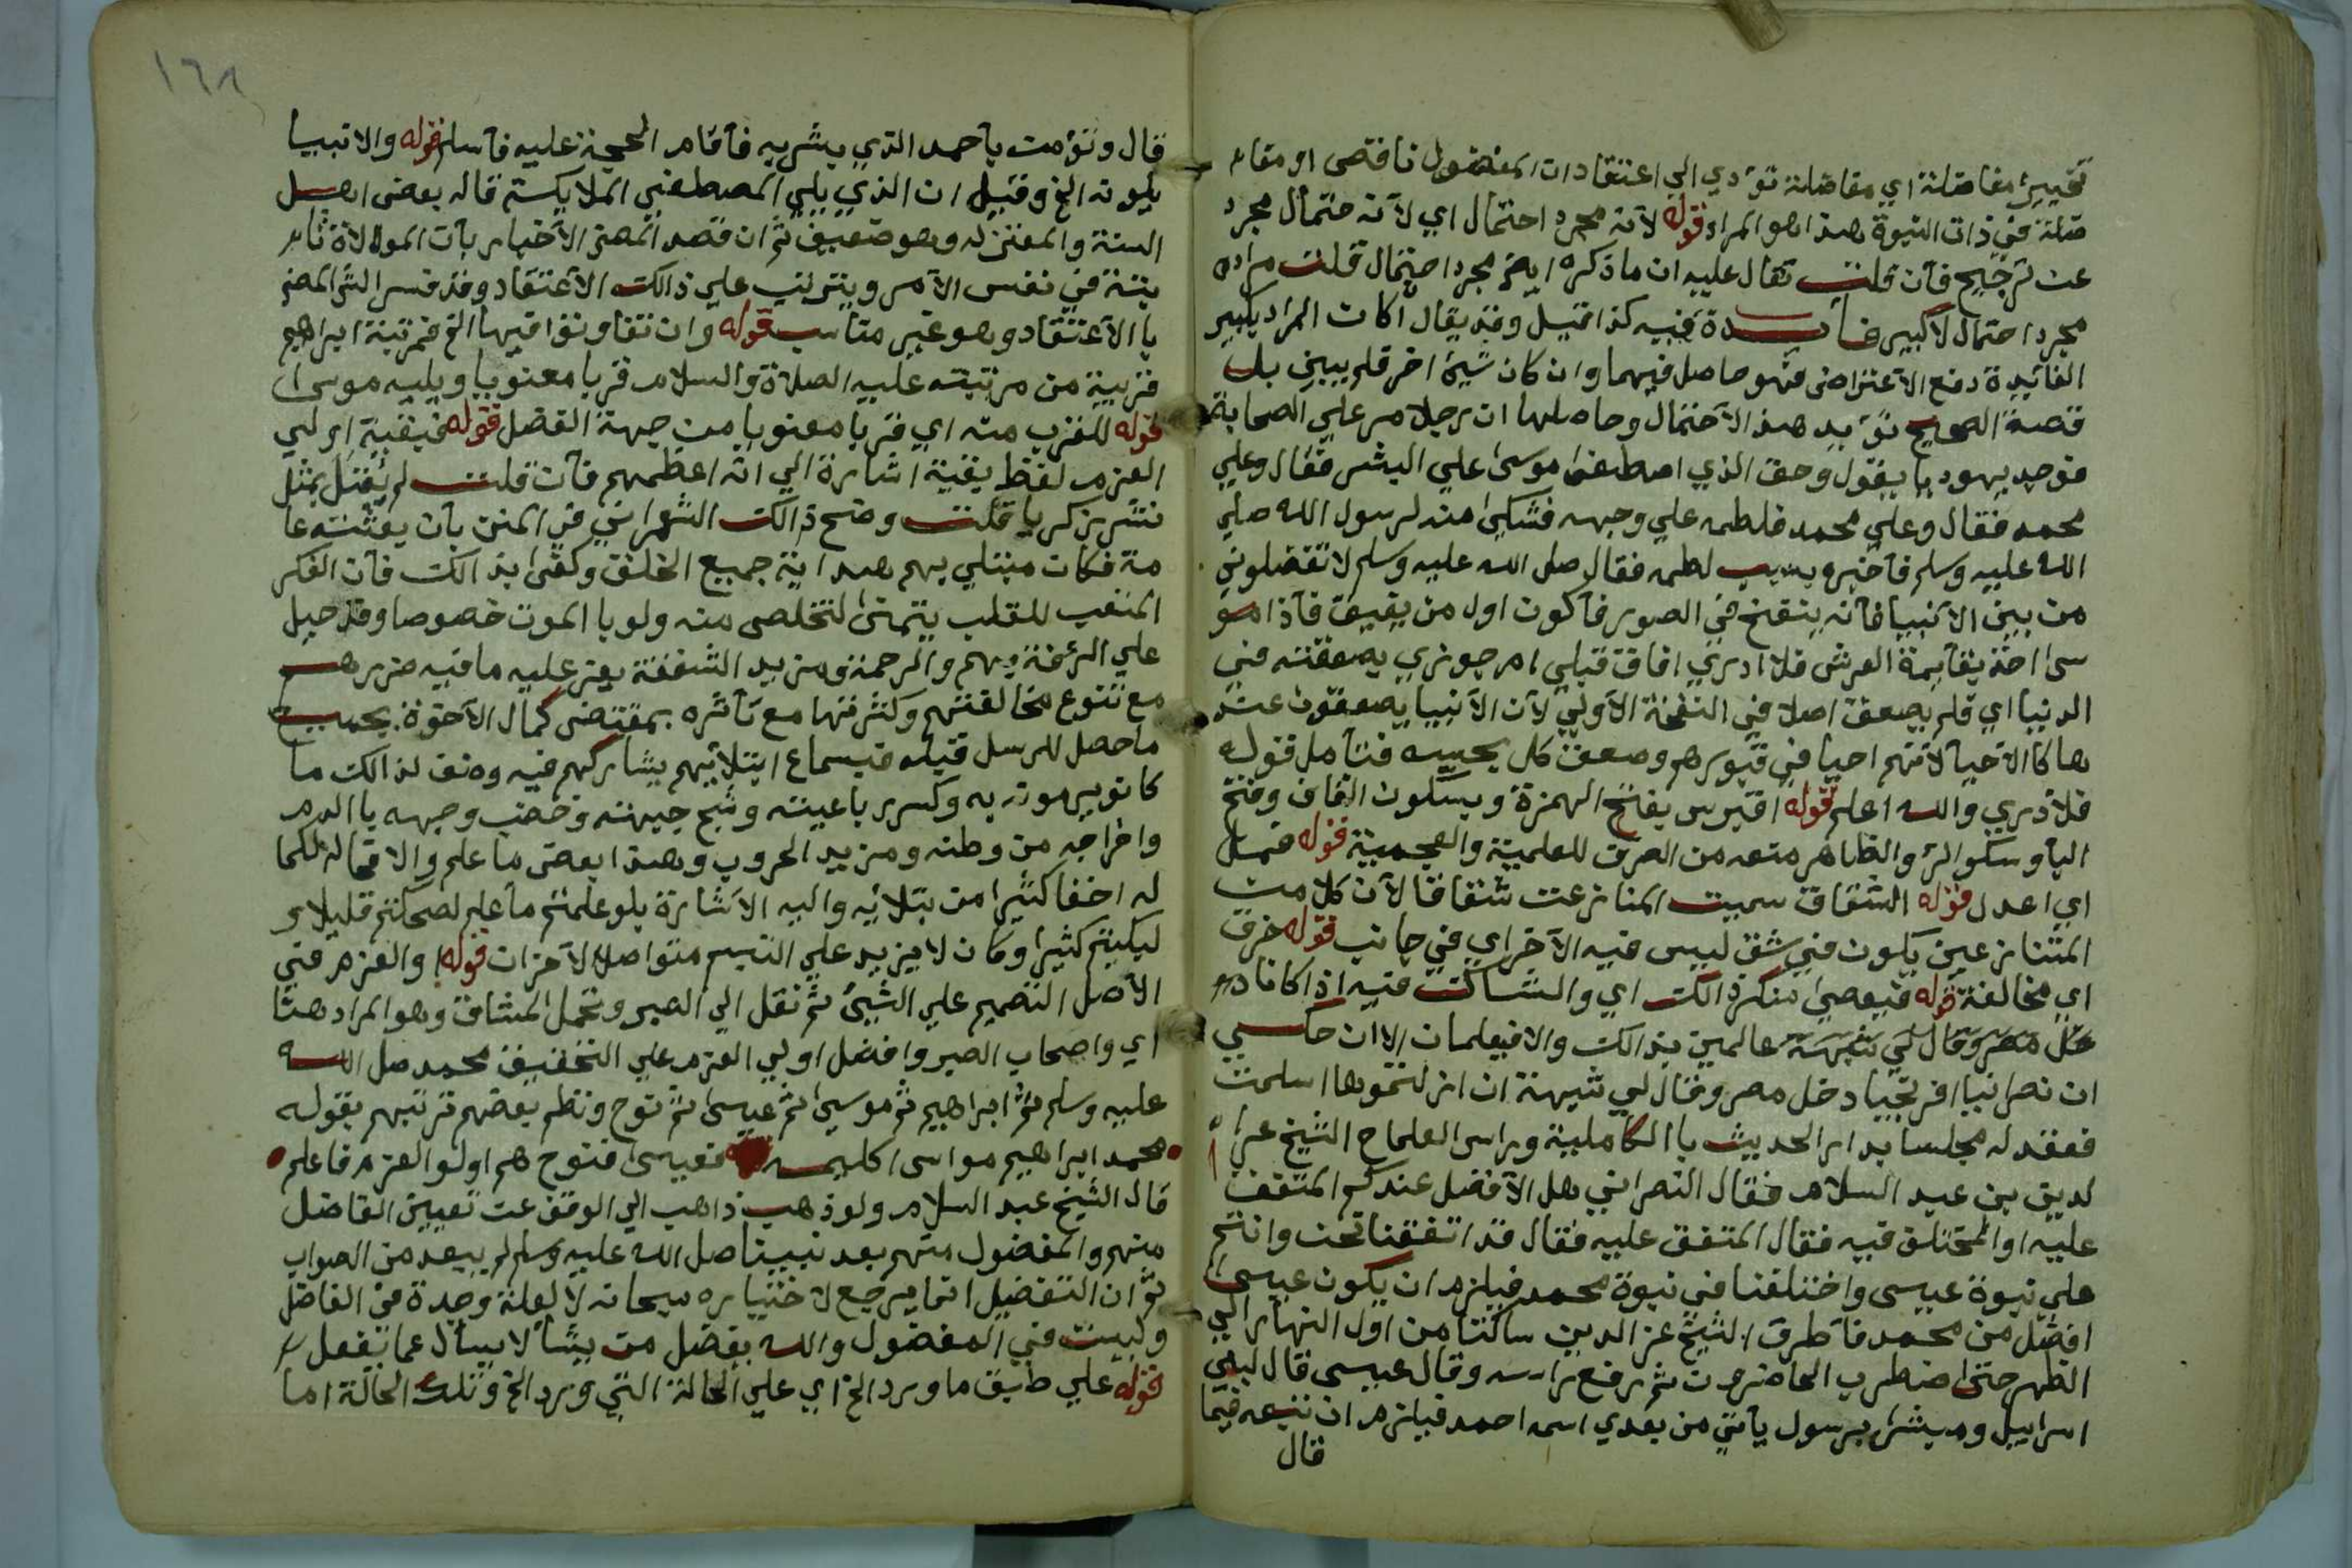 تخيير مفاضلة اي مفاضلة تؤدي الي اعتقادات المفضول ناقصى او مفا
ضلة في ذات النبوة هذا هو المراد قوله لانه مجرد احتمال اي لانه احتمال مجرد
عن ترجيح فان قلت يقال عليه ان ما ذكره ايضا مجرد احتمال قلت مراده
مجرد احتمال لاكبير فايدة فيه كذا قيل وقد يقال اكان المراد بكبير
الفائيدة دفع الاعتراض فهو حاصل فيهما وان كان شيئ اخر فلم يبين بل
قصة الصحيح تؤيد هذ الاحتمال وحاصلها ان رجلا مر علي الصحابة
فوجد يهوديا يقول وحق الذي اصطفى موسى علي البشر فقال وعلي
محمد فقال وعلي محمد فلطمه علي وجهه فشكى منه لرسول الله صلي
الله عليه وسلم فاخبره بسبب لطمه فقال صلي الله عليه وسلم لا تفضلوني
من بين الانبيا فانه ينفخ في الصور فاكون اول من يفيق فاذا مو
سى اخذ بقايمة العرش فلا ادري افاق قبلي ام جوزي بصعقته في
الدنيا اي فلم يصعق اصلا في النفخة الاولي لان الانبيا يصعقون عند
ها كا الاحيا لانهم احيا في قبورهم وصعق كل بحسبه فتامل قوله
فلا ادري والله اعلم قوله اقبرس بفتح الهمزة وبسكون القاف وفتح
البا وسكو الر والظاهر منعه من الصرف للعلمية والعجمية قوله فمسل
اي اعدل قوله الشقاق سميت المنازعت شقاقا لان كلا من
المتنازعين يكون في شق ليس فيه الاخر اي في جانب قوله خرق
اي مخالفة قوله فيعصي منكر ذالك اي والشاكت فيه اذا كانا دم
خل مصر وقال لي شبهة عالمين بذالك والا فيعلمان الا ان حكسي
ان نصرانيا افرنجيا دخل مصر وقال لي شبهة ان ازلتموها اسلمت
فعقد له مجلسا بدار الحديث با الكاملية وراس العلماح الشيخ عز ا
لدين بن عبد السلام فقال النصراني هل الافضل عندكم المتفق
عليه او المختلق فيه فقال المتفق عليه فقال قد اتفقنا نحن وانتم
علي نبوة عيسى واختلفنا في نبوة محمد فيلزم ان يكون عيسى
افضل من محمد فاطرق الشيخ عز الدين ساكتا من اول النهار الي
الظهر حتى اضطرب الحاضرون ثم رفع راسه وقال عيسى قال لبني
اسراييل ومبشرا برسول ياتي من بعدي اسمه احمد فيلزم ان نتبعه فيما
قال
١٦٨
قال ونؤمت باحمد الذي بشر به فاقام الحجة عليه فاسلم قوله والانبيا
يلونه الخ وقيل ان الذي يلي المصطفي الملايكسة قاله بعض اهسل
السنة والمعتزله وهو ضعيف ثم ان قصد المصنف الاخبار بان المولاة ثا
بتة في نفس الامر ويترتب علي ذالك الاعتقاد وقد فسر الش المصنف
با الاعتقاد وهو غير مناسب قوله وان تفاوتوا فيها الخ فمرتبة ابراهيم
قريبة من مرتبته عليه الصلاة والسلام قربا معنويا ويليه موسى
قوله للقرب منه اي قربا معنويا من جهة الفضل قوله فبقية اولي
العزم لفظ بقية اشارة الي انه اعظمهم فان قلت لم يقتل بمثل
نشر زكريا قلت وضح ذالك الشعراني في المنن بان بعثته عا
مة فكان مبتلي بهم هداية جميع الخلق وكفى بذالك فان الفكر
المتعب للقلب يتمنى لتخلص منه ولو با الموت خصوصا وقد جبل
علي الرئفة بهم والرحمة ومزيد الشفقة يعز عليه ما فيه ضررهسم
مع تنوع مخالفتهم وكثرفتها مع تاثره بمقتضى كمال الاخوة بجميسع
ما حصل للرسل قبله فبسماع ابتلاءيهم يشاركهم فيه وضف لذالك ما
كانو يرمونه به وكسر رباعيته وشج جبهته وخضب وجهه با الدم
واخراجه من وطنه ومزيد الحروب وهذا بعض ما علم والا فماله كما
له اخفا كثيرا من بتلائه واليه الاشارة بلو علمتم ما علم لضحكتم قليلا و
لبكيتم كثيرا وكان لا يزيد علي التبسم متواصل الاحزان قوله والعزم في
الاصل التصميم علي الشيئ ثم نقل الي الصبر وتحمل المشاق وهو المراد هنا
اي واصحاب الصبر وافضل اولي العزم علي التحقيق محمد صل الله
عليه وسلم ثم ابراهيم ثم موسى ثم عيسى ثم نوح ونظم بعضهم ترتيبهم بقوله
محمد ابراهيم مواسى اكليمسه فعيسى فنوح هم اولو العزم فاعلم
قال الشيخ عبد السلام ولو ذهب ذاهب الي الوقف عن تعيين الفاضل
منهم والمفضول منهم بعد نبينا صل الله عليه وسلم لم يبعد من الصواب
ثم ان التفضيل انما يرجع لاختياره سبحانه لا لعلة وجدة في الفاضل
وليست في المفضول والله يفضل من يشا لا يسأل عما يفعل
قوله علي طبق ما ورد الخ اي علي الحالة التي ورد الخ وتلك الحالة اما